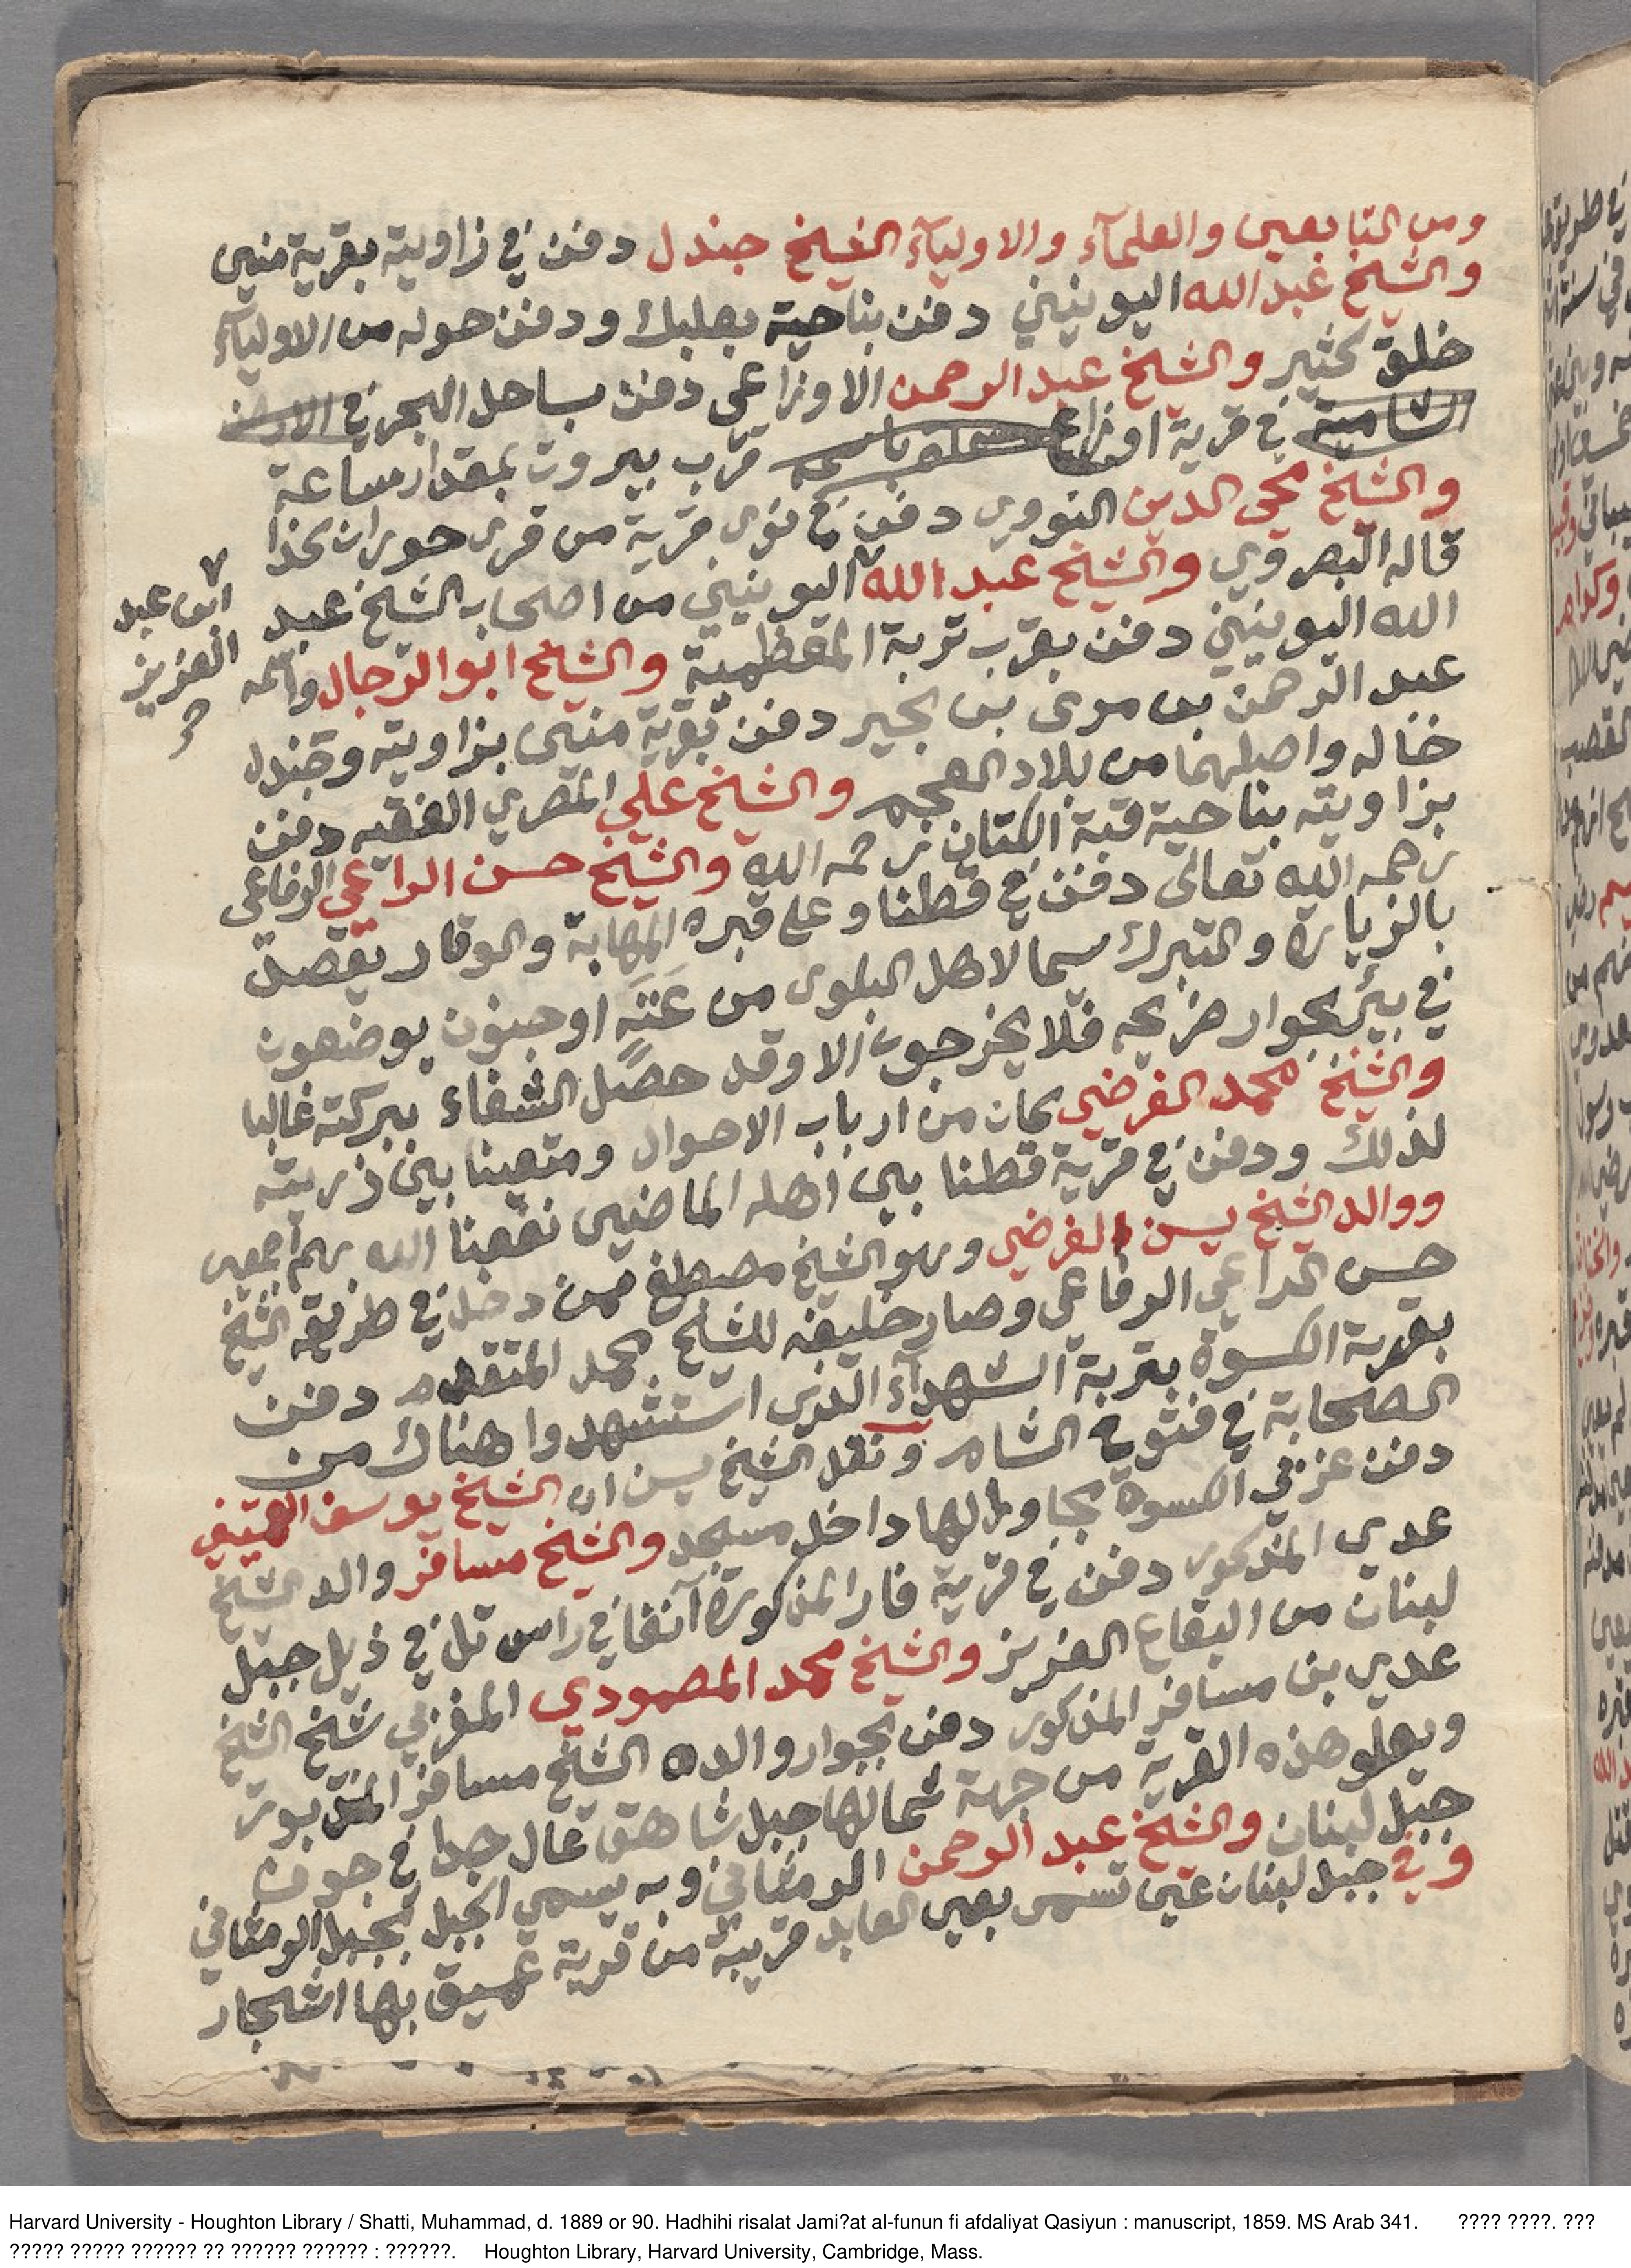 ومن التابعين والعلماء والاولياء الشيخ جندل دفن في زاويته بقرية منين
والشيخ عبد الله اليونيني دفن بناحية بعلبك ودفن حوله من الاولياء
خلق كثير والشيخ عبد الرحمن الاوزاعي دفن بساحل البحر في الارض
الشامية في قرية اوزاع قرب بيروت بمقدار ساعة
والشيخ محي الدين النووي دفن في نوى قرية من قرى حوران كذا
قاله البصروي والشيخ عبد الله اليونيني من اصحاب الشيخ عبد
ابن عبد
العزيز
صح
الله اليونيني دفن بقرب تربة المعظمية والشيخ ابو الرجال واسمه
عبد الرحمن بن مرى بن بحير دفن بقرية منين بزاويته وجندل
خاله واصلهما من بلاد العجم والشيخ علي المصري الفقيه دفن
بزاويته بناحية قبة الكتان رحمه الله والشيخ حسن الراعي الرفاعي
رحمه الله تعالى دفن في قطنا وعلى قبره المهابة والوقار يقصد
بالزيارة والتبرك سيما لاهل البلوى من عَتَهٍ او جنون يوضعون
في بئر بجوار ضريحه فلا يخرجون الا وقد حصل الشفاء ببركته غالبا
والشيخ محمد الفرضي كان من ارباب الاحوال ومتعينا بين ذريته
لذلك ودفن في قرية قطنا بين اهله الماضين نفعنا الله بهم اجمعين
ووالد الشيخ يسن الفرضي وهو الشيخ مصطفى ممن دخل في طريقة الشيخ
حسن الراعي الرفاعي وصار خليفه للشيخ محمد المتقدم دفن
بقرية الكسوة بتربة الشهداء الذين استشهدوا هناك من
الصحابة في فتوح الشام ونقل الشيخ يسن ان الشيخ يوسف
دفن غربي الكسوة داخل مسجد والشيخ مسافر والد الشيخ
عدي المذكور دفن في قرية فار المذكورة آنفا في راس تل في ذيل جبل
لبنان من البقاع العزيز والشيخ محمد المصمودي المغربي شيخ الشيخ
عدي بن مسافر المذكور دفن بجوار والده الشيخ مسافر المذبور
ويعلو هذه القرية من جهة شمالها جبل شاهق عال جدا في جوف
جبل لبنان والشيخ عبد الرحمن الرمثاني وبه يسمى الجبل بجبل الرمثاني
وفي جبل لبنان عين تسمى بعين العابد قريبة من قرية عميق بها اشجار
Harvard University - Houghton Library / Shatti, Muhammad, d. 1889 or 90. Hadhihi risalat Jami?at al-funun fi afdaliyat Qasiyun : manuscript, 1859. MS Arab 341. ???? ????. ???
????? ????? ?????? ?? ?????? ?????? : ??????. Houghton Library, Harvard University, Cambridge, Mass.